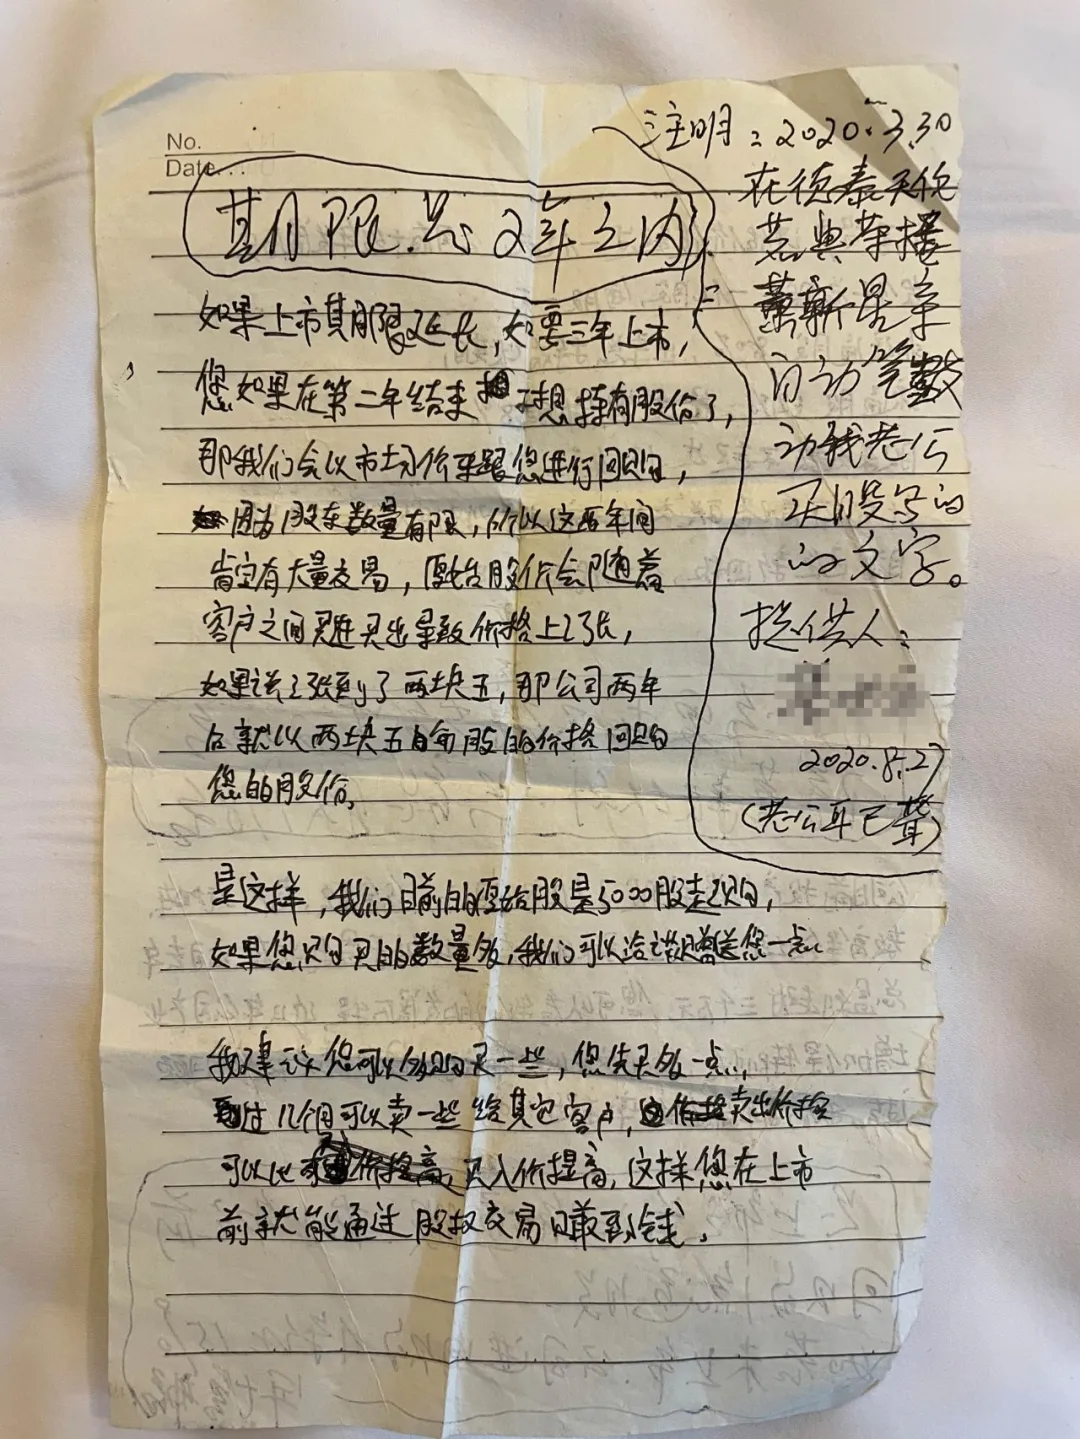 No.
Date...
期限是2年之内
如果上市期限延长,如要三年上市,
您如果在第二年结束不想持有股份了,
那我们会以市场价来跟您进行回购,
因为股东数量有限,所以这两年间
肯定有大量交易,原始股价会随着
客户之间买进买出导致价格上涨,
如果说涨到了两块五,那公司两年
后就以两块五每股的价格回购
您的股份。
是这样,我们目前的原始股是5000股起购,
如果您购买的数量多,我们可以给您赠送您一点。
我建议您可以多购买一些,您先买多一点,
过几个可以卖一些给其它客户,卖出价格
可以比买入价提高,这样您在上市
前就能通过股权交易赚到钱。
注明:2020.3.30
在德泰天
典荣
新星
动笔
动我老公
买股写的
的文字。
提供人:
2020.8.27
(老公耳已聋)